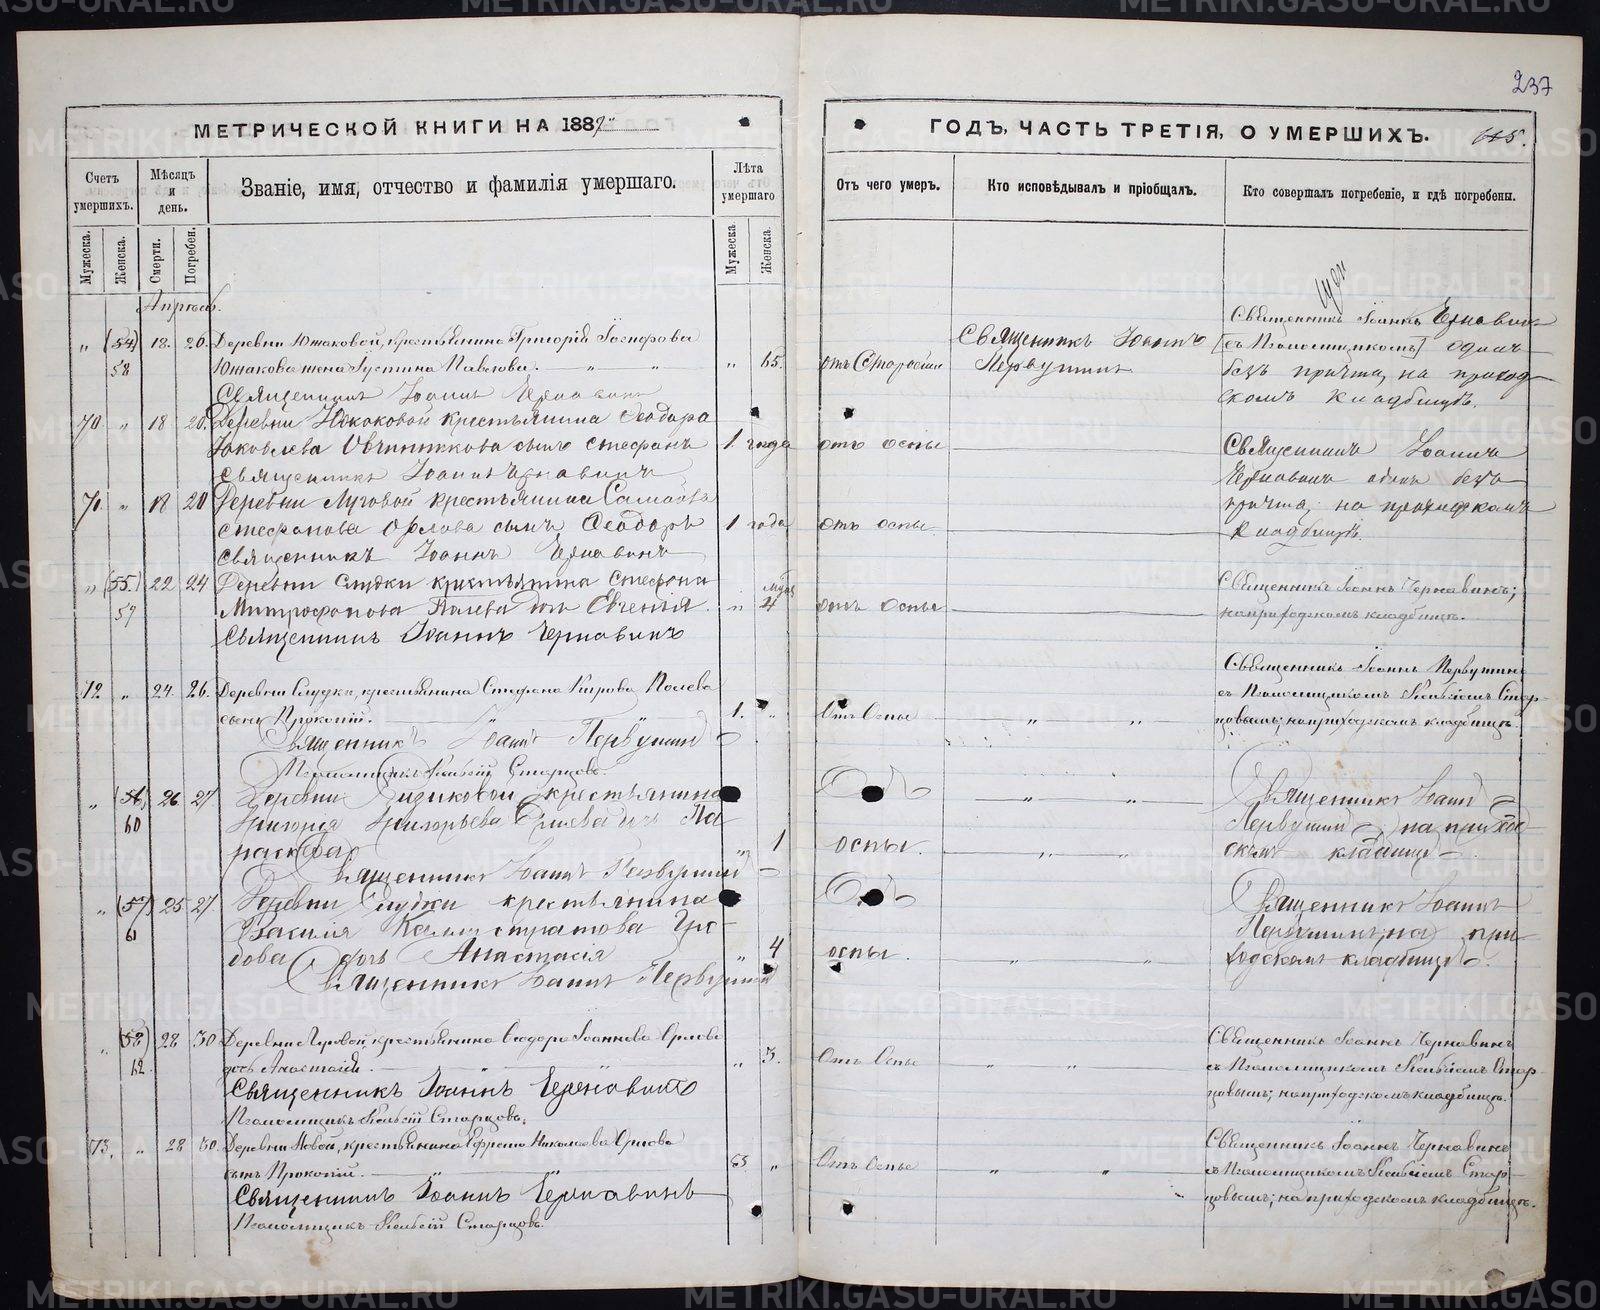 237
МЕТРИЧЕСКОЙ КНИГИ НА 1887
ГОДЪ, ЧАСТЬ ТРЕТІЯ, О УМЕРШИХЪ.
Счетъ умершихъ.
Мѣсяцъ и день.
Званіе, имя, отчество и фамилія умершаго.
Лѣта умершаго
Отъ чего умеръ.
Кто исповѣдывалъ и пріобщалъ.
Кто совершалъ погребеніе, и гдѣ погребены.
Мужеска.
Женска.
Смерти.
Погребен.
Мужеска
Женска.
Апрѣль.
" (54) 58 18. 20. Деревни Южаковой, крестьянина Григорія
Южакова жена Іустина Павлова. " 65. отъ Старости Священникъ Іоаннъ Первушинъ
Священникъ Іоаннъ Чернавинъ
[съ Псаломщикомъ] одинъ
безъ причта, на приход-
скомъ кладбищѣ.
Священникъ Іоаннъ Чернавинъ
70. " 18 20. Деревни Южаковой крестьянина Ѳеодора
Яковлева Овчинникова сынъ Стефанъ 1 года отъ оспы
Священникъ Іоаннъ Чернавинъ
Священникъ Іоаннъ
Чернавинъ одинъ безъ
причта, на приходскомъ
кладбищѣ.
71. " 18 20 Деревни Луговой крестьянина
Стефанова Орлова сынъ Ѳеодоръ 1 года отъ оспы
Священникъ Іоаннъ Чернавинъ
" (55.) 59 22 24 Деревни Слудки крестьянина Стефана
Митрофанова Палева дочь Евгенія. " 4 отъ Оспы
Священникъ Іоаннъ Чернавинъ
Священникъ Іоаннъ Чернавинъ;
на приходскомъ кладбищѣ.
72 " 24. 26. Деревни Слудки, крестьянина Стефана Кирова Полева
сынъ Прокопій. 1. " Отъ Оспы " "
Священникъ Іоаннъ Первушинъ
Псаломщикъ Старцовъ.
Священникъ Іоаннъ Первушинъ
съ Псаломщикомъ Стар-
цовымъ; на приходскомъ кладбищѣ.
" (56) 60 26 27 Деревни крестьянина
Григорія Григорьева дочь Па-
раскева " 1 Отъ оспы. " "
Священникъ Іоаннъ Первушинъ
Священникъ Іоаннъ
Первушинъ, на приход-
скомъ кладбищѣ.
" (57) 61 25 27 Деревни Слудки крестьянина
Василія Каллистратова
дочь Анастасія " 4 Отъ оспы. " "
Священникъ Іоаннъ Первушинъ
Священникъ Іоаннъ
Первушинъ, на при-
ходскомъ кладбищѣ.
" (58) 62. 28 30 Деревни Луговой, крестьянина Ѳеодора Іоаннова Орлова
дочь Анастасія. " 3. Отъ Оспы " "
Священникъ Іоаннъ Чернавинъ
Псаломщикъ Старцовъ.
Священникъ Іоаннъ Чернавинъ
съ Псаломщикомъ Стар-
цовымъ; на приходскомъ кладбищѣ.
73. " 28 30. Деревни Новой, крестьянина Ефрема Николаева Орлова
сынъ Прокопій. " Отъ Оспы " "
Священникъ Іоаннъ Чернавинъ
Псаломщикъ Старцовъ.
Священникъ Іоаннъ Чернавинъ
съ Псаломщикомъ Стар-
цовымъ; на приходскомъ кладбищѣ.
METRIKI.GASO-URAL.RU